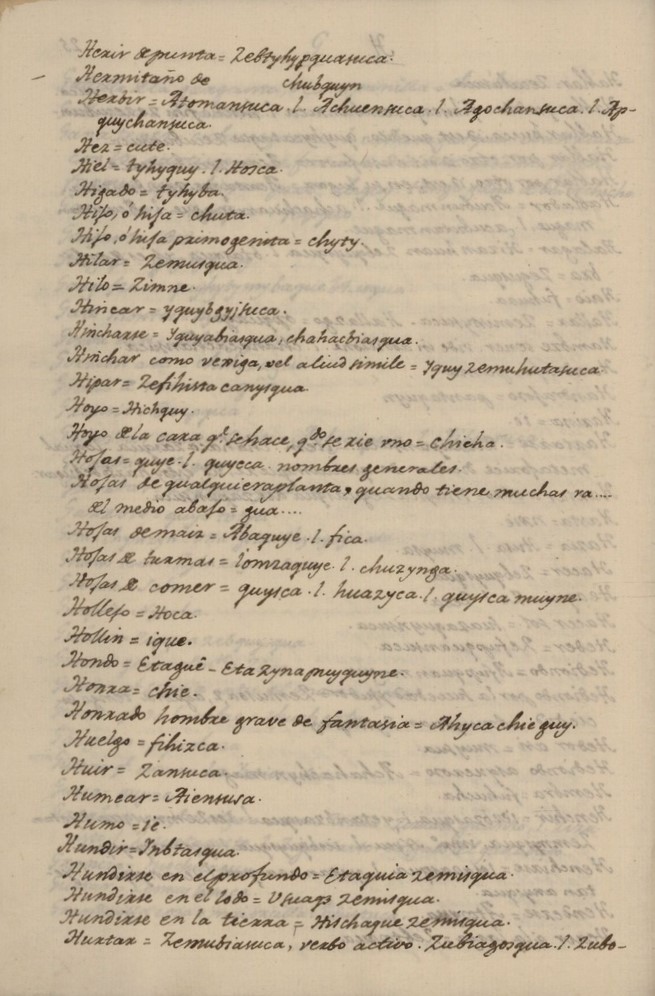 Herir de punta = Zebtyhypquasuca.
Hermitaño de chubquyn
Herbir = Atomansuca. l. Achuensuca. l. Agochansuca. l. Ap-
quychansuca.
Hez = cute.
Hiel = tyhyquy. l. Hosca.
Higado = tyhyba.
Hijo, ó hija = chuta.
Hijo, ó hija primogenita = chyty.
Hilar = Zemusqua.
Hilo = Zimne.
Hincar = yquybgyisuca.
Hincharse = Yquyabiasqua, chahacbiasqua.
Hinchar como vexiga, vel aliud simile = Yquy zemuhutasuca
Hipar = Zefihista canysqua
Hoyo = Hichquy.
Hoyo de la cara q.e se hace, q.do se rie uno = chicha.
Hojas = quye. l. quycca. nombres generales.
Hojas de qualquiera planta, quando tiene muchas ra....
del medio abajo = gua....
Hojas de maiz = Abaquye. l. fica.
Hojas de turmas = Iomzaquye. l. chuzynga.
Hojas de comer = quysca. l. huazyca. l. quysca muyne.
Hollejo = Hoca.
Hollin = ique.
Hondo = Etaguê - Eta zynapuyquyne.
Honra = chie.
Honrado hombre grave de fantasia = Ahyca chie guy.
Huelgo = fihizca.
Huir = Zansuca.
Humear = Aiensusa.
Humo = ie.
Hundir = Ynbtasqua.
Hundirse en el profundo = Etaquia zemisqua.
Hundirse en el lodo = Usuags zemisqua.
Hundirse en la tierra = Hischaque zemisqua.
Hurtar = Zemubiasuca, verbo activo. Zubiagosqua. l. Zubo-